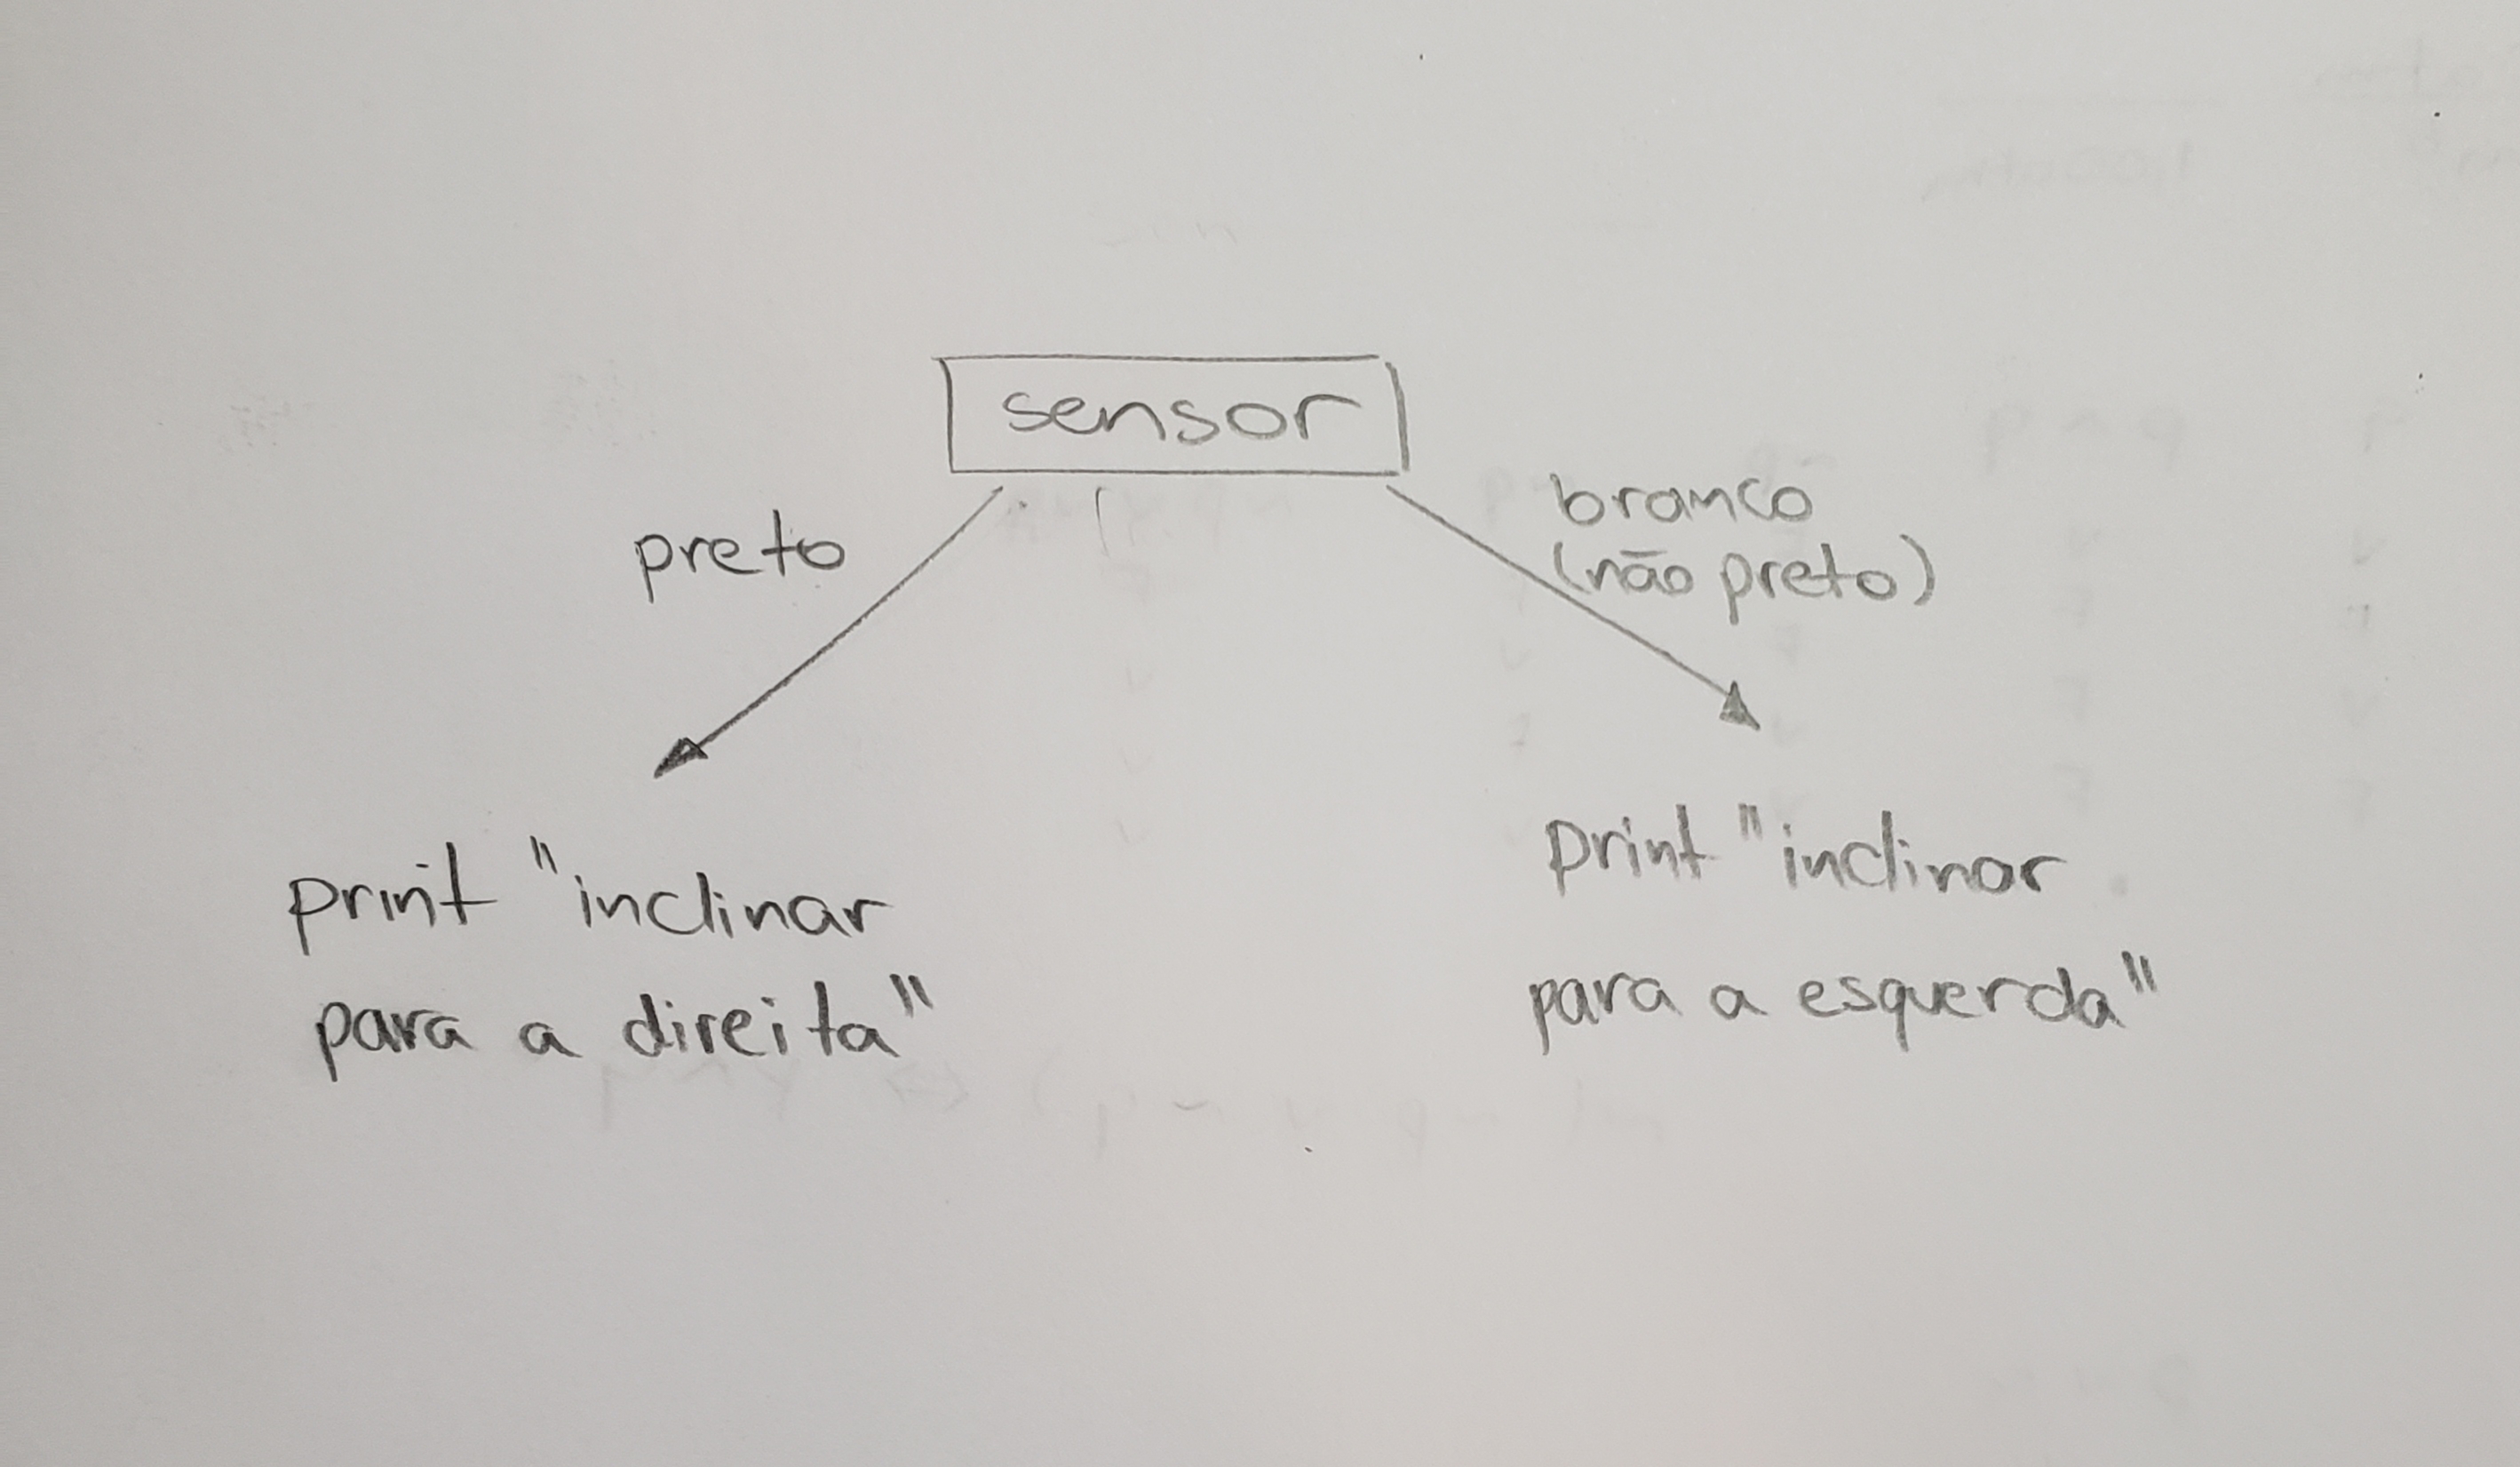 sensor
preto
branco
(não preto)
print "inclinar
para a direita"
print "inclinar
para a esquerda"